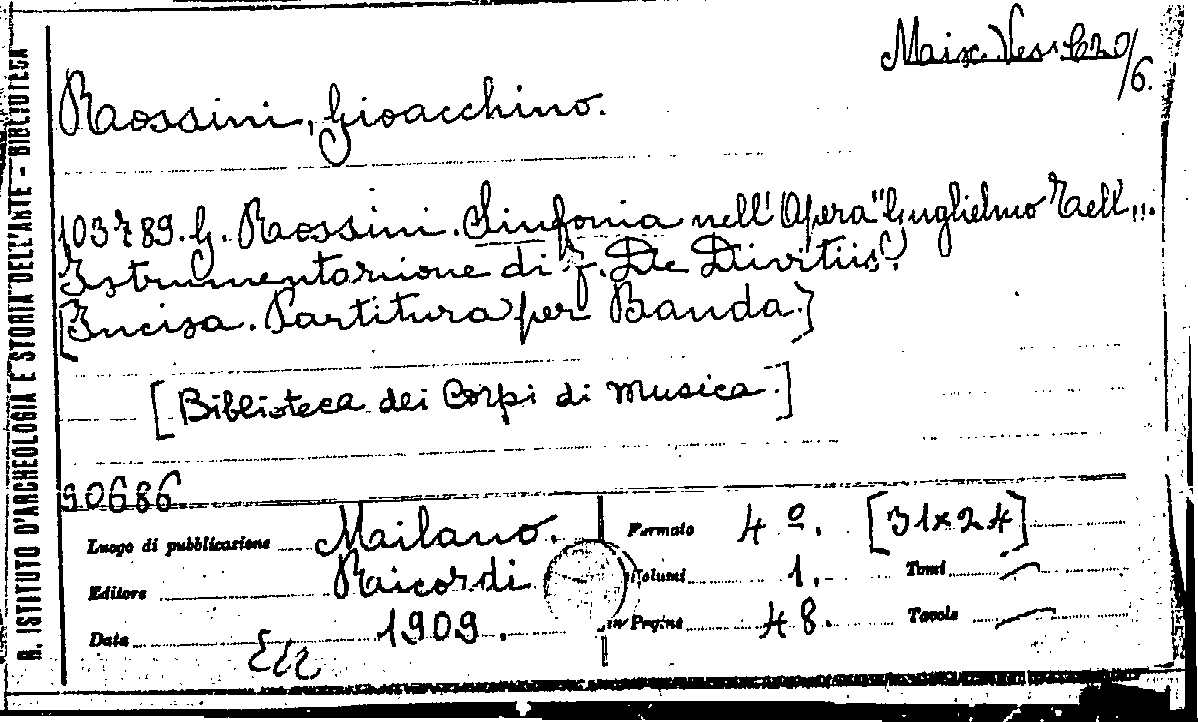 R. ISTITUTO D'ARCHEOLOGIA E STORIA DELL'ARTE - BIBLIOTECA
Misc. Ves. 620/6.
Rossini, Gioacchino.
103789. G. Rossini. Sinfonia nell' Opera "Guglielmo Tell".
Istrumentazione di F. De Divitiis.
[Incisa. Partitura per Banda.]
[Biblioteca dei Corpi di Musica.]
90686
Luogo di pubblicazione Milano. Formato 4º. [31x24]
Editore Ricordi Volumi 1. Tomi —
Data 1909. Pagine 48. Tavole —